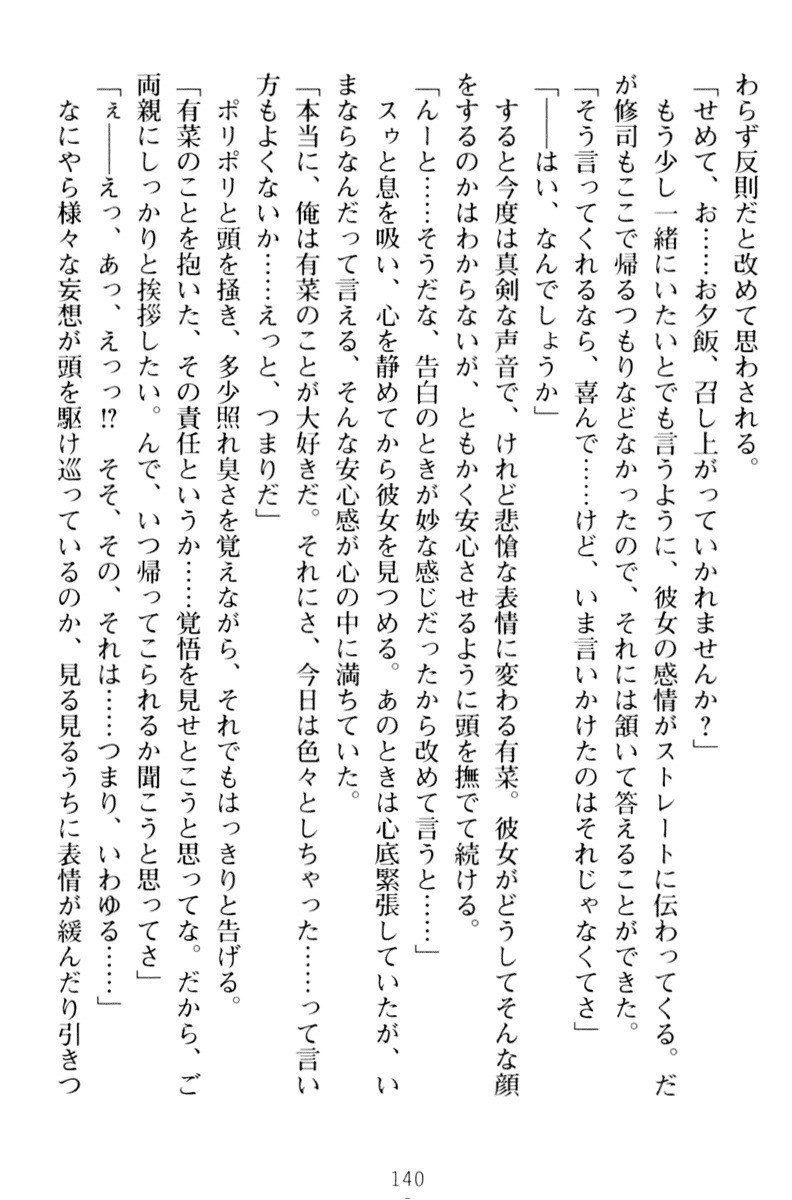 わらず反則だと改めて思わされる。
「せめて、お……お夕飯、召し上がっていかれませんか？」
　もう少し一緒にいたいとでも言うように、彼女の感情がストレートに伝わってくる。だ
が修司もここで帰るつもりなどなかったので、それには頷いて答えることができた。
「そう言ってくれるなら、喜んで……けど、いま言いかけたのはそれじゃなくてさ」
「――はい、なんでしょうか」
　すると今度は真剣な声音で、けれど悲愴な表情に変わる有菜。彼女がどうしてそんな顔
をするのかはわからないが、ともかく安心させるように頭を撫でて続ける。
「んーと……そうだな、告白のときが妙な感じだったから改めて言うと……」
　スゥと息を吸い、心を静めてから彼女を見つめる。あのときは心底緊張していたが、い
まならなんだって言える、そんな安心感が心の中に満ちていた。
「本当に、俺は有菜のことが大好きだ。それにさ、今日は色々としちゃった……って言い
方もよくないか……えっと、つまりだ」
　ポリポリと頭を掻き、多少照れ臭さを覚えながら、それでもはっきりと告げる。
「有菜のことを抱いた、その責任というか……覚悟を見せとこうと思ってな。だから、ご
両親にしっかりと挨拶したい。んで、いつ帰ってこられるか聞こうと思ってさ」
「ぇ――えっ、あっ、えっっ!?　そそ、その、それは……つまり、いわゆる……」
　なにやら様々な妄想が頭を駆け巡っているのか、見る見るうちに表情が緩んだり引きつ
140